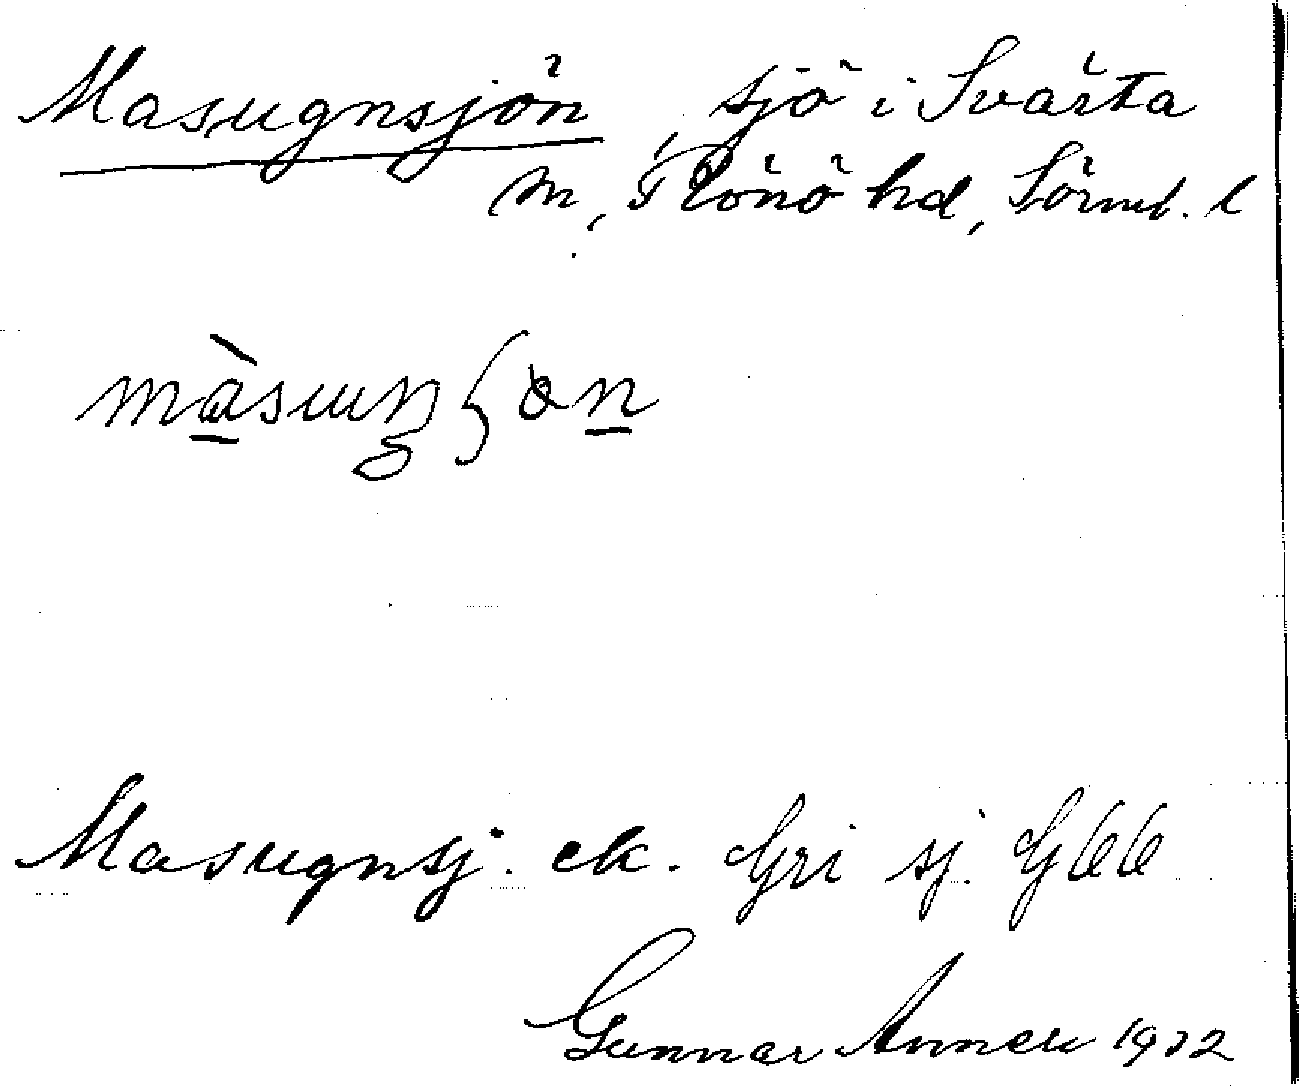 Masugnsjön, sjö i Svärta
sn, Rönö hd, Sörml. l
Masugnsj. ek. Gri sj. G66
Gunnar 1932